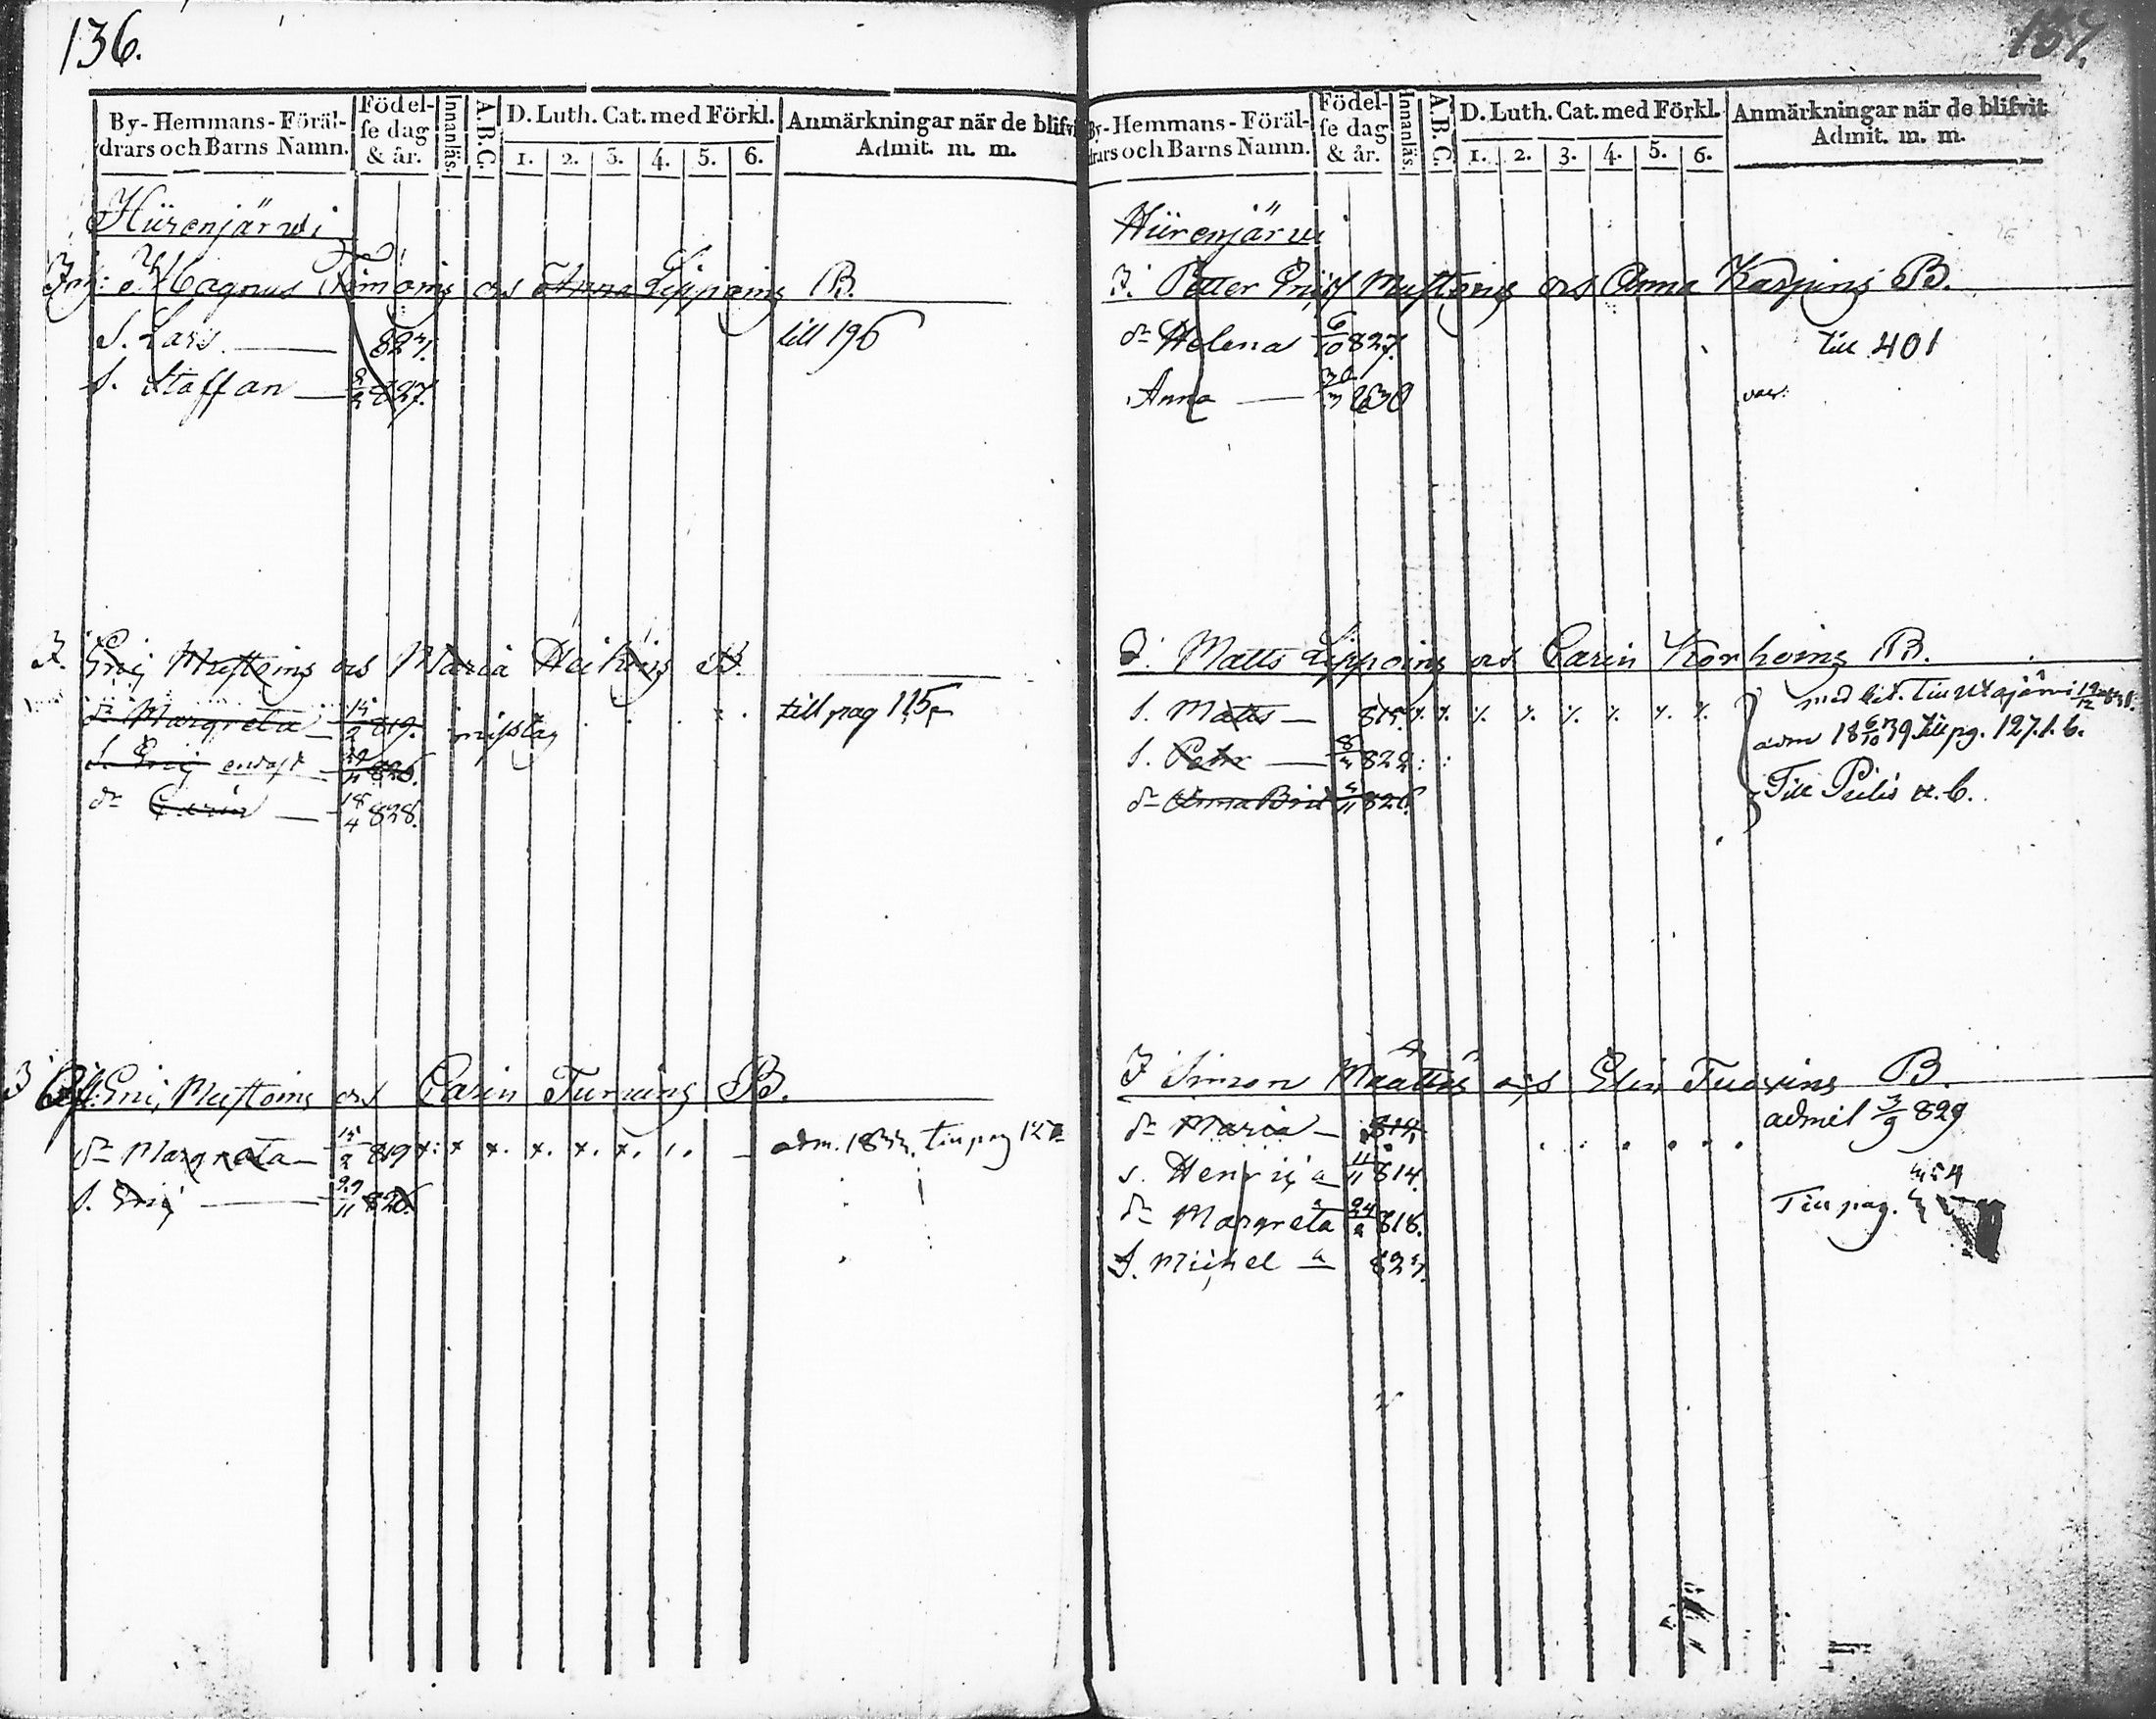 136.
By-Hemmans-Föräl-
drars och Barns Namn.
Födel-
se dag
& år.
Innanläs.
A.B.C.
D. Luth. Cat. med Förkl.
1. 2. 3. 4. 5. 6.
Anmärkningar när de blifvi
Admit. m. m.
Hiirenjärwi
Magnus Timoins os Anna Lippoins B.
S. Lars 823. till 196
S. Staffan 9/2 827.
I. Eric Mustoins os Maria Heikins B.
dr Margreta 15/2 819. till pag 115
S. Eric 29/11 826.
dr Carin 18/4 828.
Eric Mustoins os Carin Turuins B.
dr Margreta 15/2 819 x x x. x. x. x. adm. till pag 127
S. Eric 29/11 826
137.
By-Hemmans-Föräl-
drars och Barns Namn.
Födel-
se dag
& år.
Innanläs.
A.B.C.
D. Luth. Cat. med Förkl.
1. 2. 3. 4. 5. 6.
Anmärkningar när de blifvit
Admit. m. m.
Hiirenjärwi
I. Petter Mustoins os Anna Karjuins B.
dr Helena 6/10 827. till 401
Anna 30/3 830 vac:
I. Matts Lippoins os Carin Korhoins B.
S. Matts 815. med bet. till Utajärvi
adm 18 6/10 39 till pg. 127. l. b.
S. Petr 8/3 822
dr Anna Brit 5/11 826 Till Piilis
I Simon os Elin B.
dr Maria 812. admit 3/9 829
s. Henric a 11/11 814.
dr Margreta 24/2 818. Till pag. 454
S. Michel a 823.